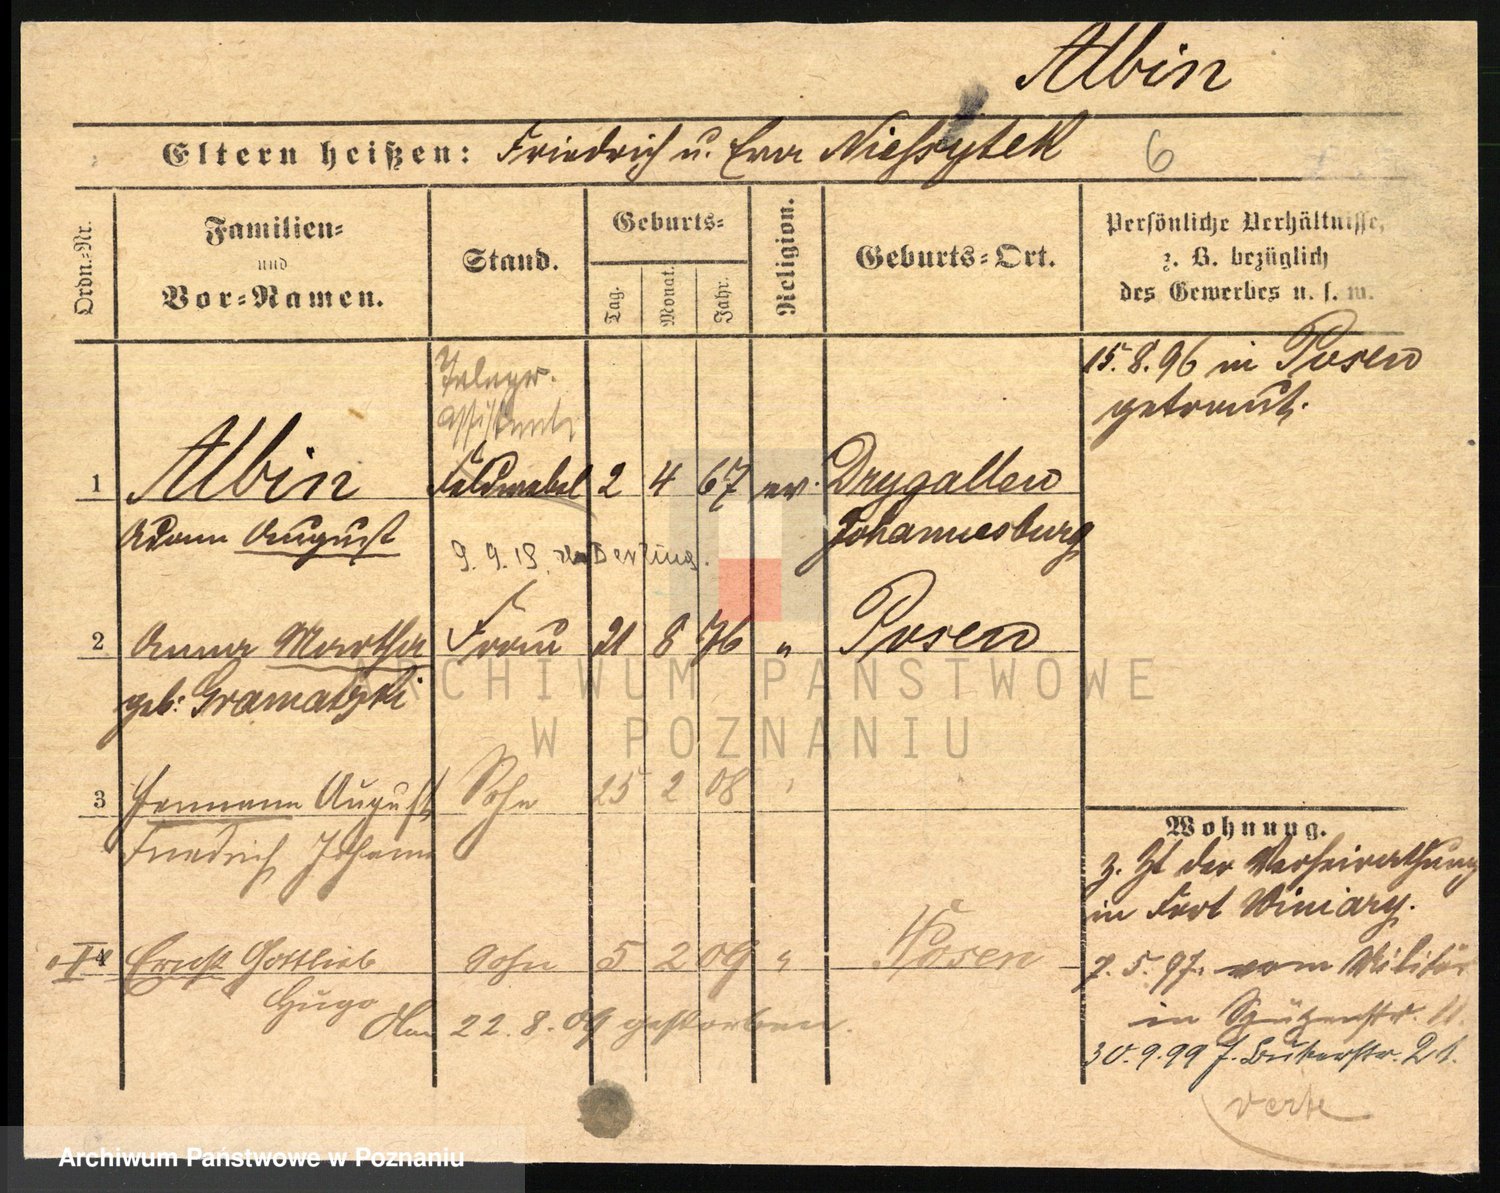 Albin
Eltern heißen: Friedrich u. Eva Nießzytek 6
Ordn.-Nr.
Familien-
und
Vor-Namen.
Stand.
Geburts-
Tag. Monat. Jahr.
Religion.
Geburts-Ort.
Persönliche Verhältnisse,
z. B. bezüglich
des Gewerbes u. s. w.
15.8.96 in Posen
getraut.
Telegr.
Assistent
1 Albin Feldwebel 2 4 67 ev. Drygallen
Adam August Johannesburg
9.9.19. Berlin
2 Anna Martha Frau 21 8 76 " Posen
geb: Gramatzki
3 Hermann August Sohn 25 2 08 "
Friedrich Johann
4 Ernst Gottlieb Sohn 5 2 09 " Posen
Hugo
Am 22.8.09 gestorben.
Wohnung.
z. Zt der Verheirathung
in Fort Winiary.
7.5.97. vom Militär
in Schützenstr.
30.9.99
verte
ARCHIWUM PAŃSTWOWE
W POZNANIU
Archiwum Państwowe w Poznaniu